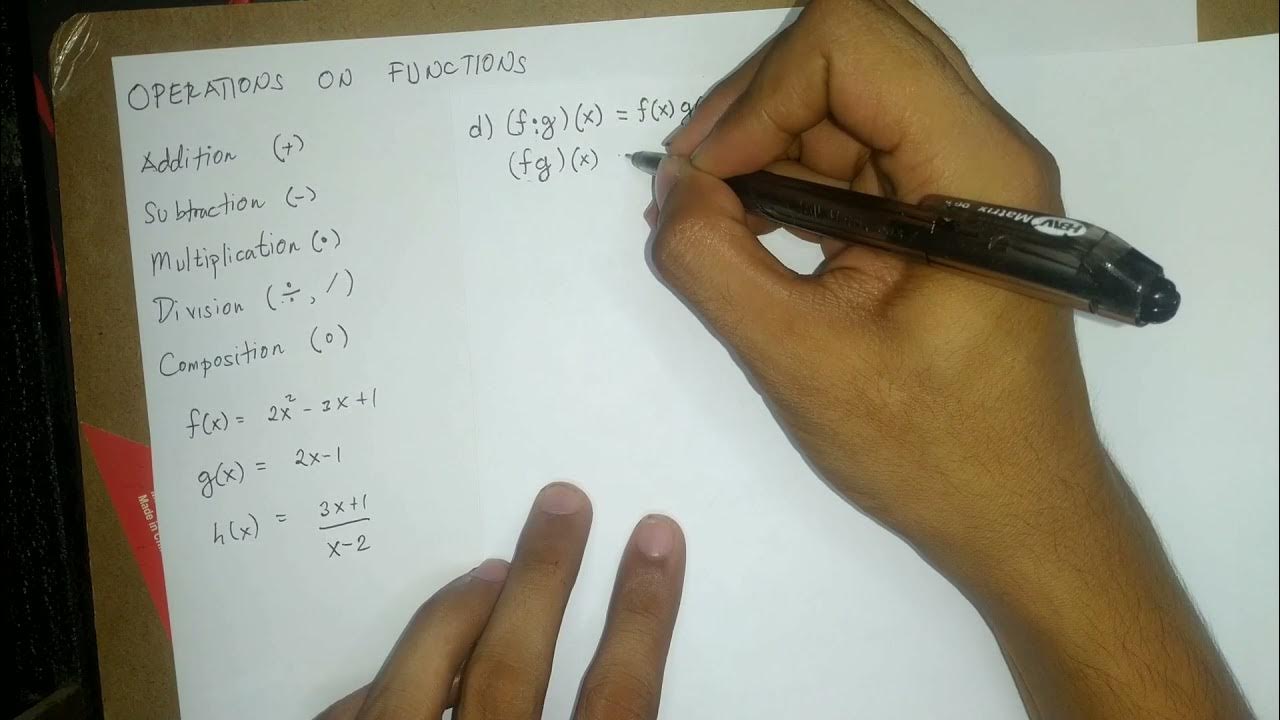 OPERATIONS ON FUNCTIONS
Addition (+)
Subtraction (-)
Multiplication (•)
Division (÷, /)
Composition (o)
f(x) = 2x² - 3x + 1
g(x) = 2x-1
h(x) = 3x+1
x-2
d) (f•g)(x) = f(x) g(
(fg)(x)
HBW Matrix
Made in